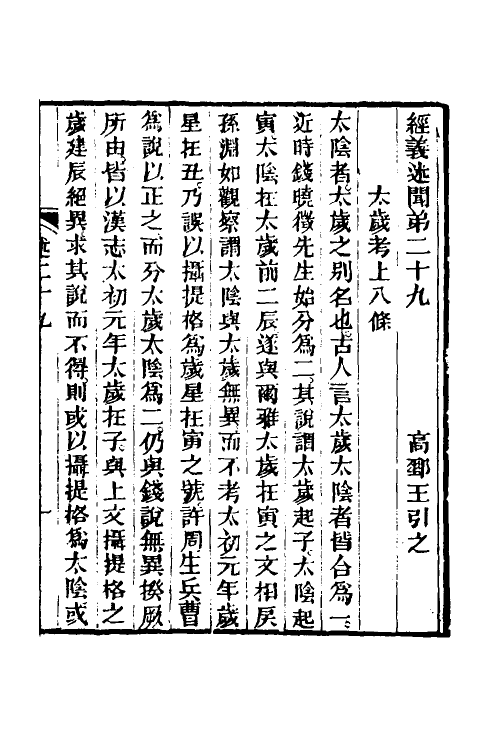 經義述聞弟二十九　　　高郵王引之
太歲考上八條
太陰者太歲之別名也古人言太歲太陰者皆合爲一
近時錢曉徵先生始分爲二其說謂太歲起子太陰起
寅太陰在太歲前二辰遂與爾雅太歲在寅之文相戾
孫淵如觀察謂太陰與太歲無異而不考太初元年歲
星在丑乃誤以攝提格爲歲星在寅之號許周生兵曹
爲說以正之而分太歲太陰爲二仍與錢說無異揆厥
所由皆以漢志太初元年太歲在子與上文攝提格之
歲建辰絕異求其說而不得則或以攝提格爲太陰或
述二十九
一